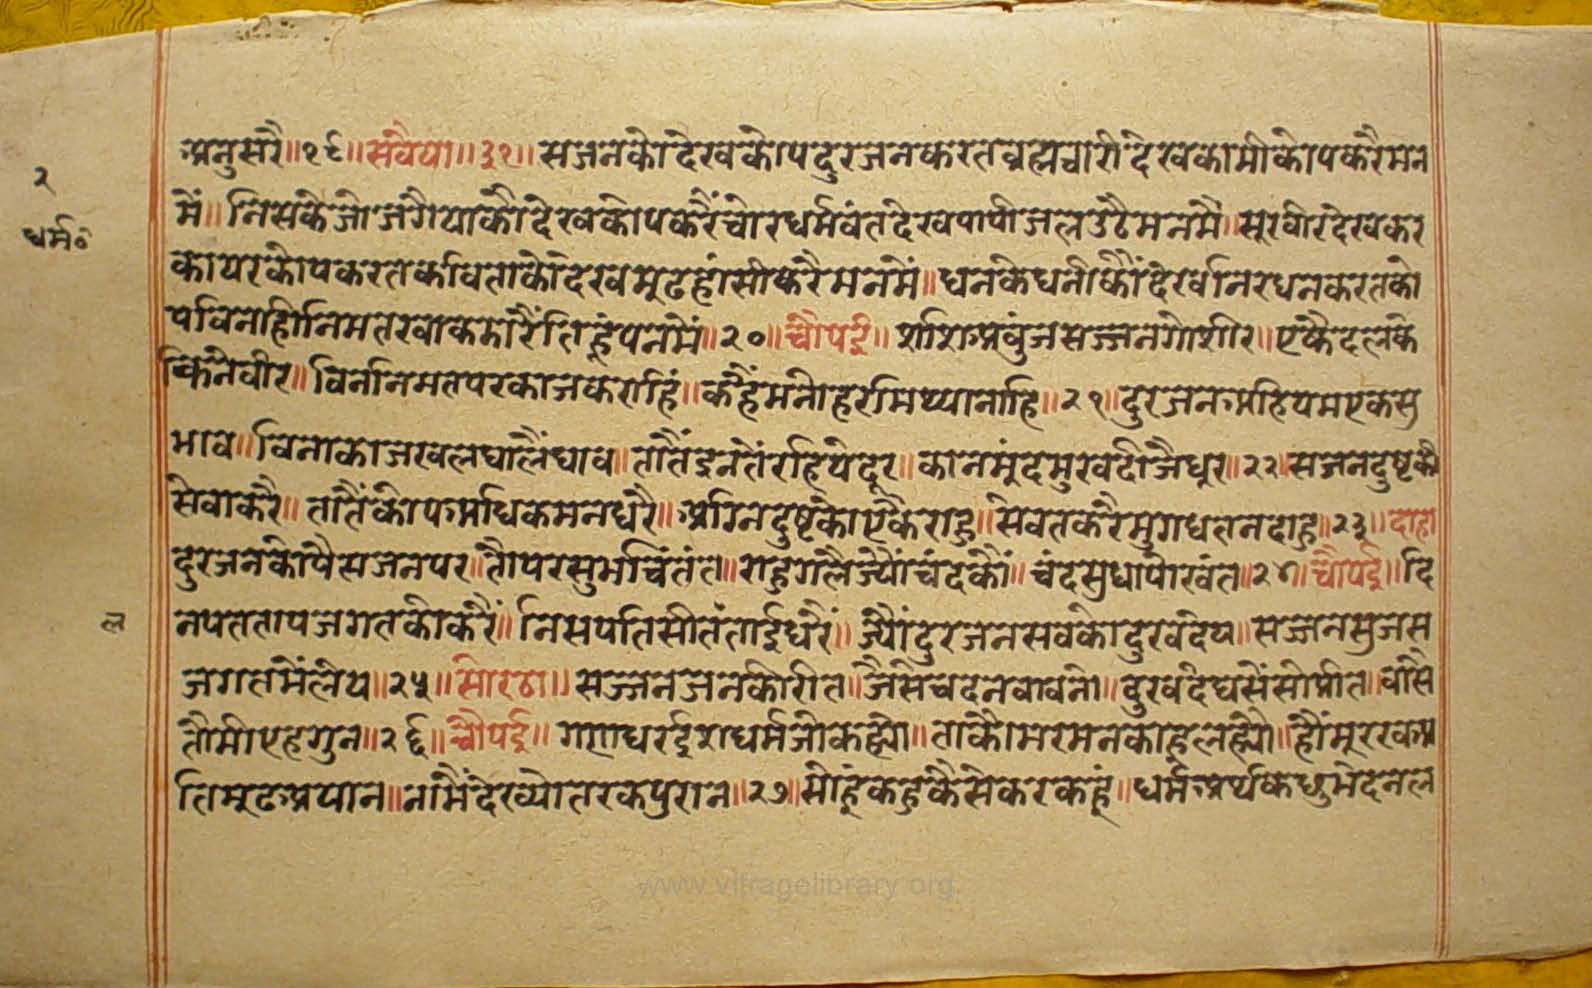 २
धर्म॰
अनुसरै॥१९॥सवैया॥३१॥सजनकोदेखकोपदुरजनकरतब्रह्मचारीदेखकामीकोपकरैमन
मैं॥निसकेजोजगैयाकौदेखकोपकरैंचोरधर्मवंतदेखपापीजलउठैमनमैं॥सूरवीरदेखकर
कायरकोपकरतकविताकोदेखमूढहांसीकरैमनमें॥धनकेधनीकौंदेखनिरधनकरतको
पविनाहीनिमतखाकडारैंतिहूंपनमें॥२०॥चौपई॥शशिअंबुजसज्जनगोशीर॥एकैदलके
किनैवीर॥विननिमतपरकाजकराहिं॥कहैंमनोहरमिथ्यानाहि॥२१॥दुरजनअहियमएकसु
भाव॥विनाकाजखलघालैंघाव॥तातैंइनतेंरहियेदूर॥कानमुंदमुखदीजैधूर॥२२॥सजनदुष्टकी
सेवाकरै॥तातैंकोपअधिकमनधरै॥अगनिदुष्टकोएकैराहु॥सेवतकरैमुगधतनदाहु॥२३॥दोहा
दुरजनकोपैसजनपर॥तौपरसुभचिंतंत॥राहुगलैज्यौंचंदकौं॥चंदसुधापोखंत॥२४॥चौपई॥दि
ल
नपततापजगतकौकरैं॥निसपतिसीतंताईधरैं॥ज्यौंदुरजनसवकोदुखदेय॥सज्जनसुजस
जगतमैंलेय॥२५॥सोरठा॥सज्जनजनकीरीत॥जैसेचदनवावनो॥दुखदेघसेंसोप्रीत॥वासै
तौमीएहगुन॥२६॥चौपई॥गणधरईशधर्मजोकह्यौ॥ताकौमरमनकाहूलह्यौ॥हौंमूरखअ
तिमूढअयान॥नामैंदेख्योतरकपुरान॥२७॥सोहूंकहुकैसेकरकहूं॥धर्मअर्थकछुभेदनल
www.vitragelibrary.org